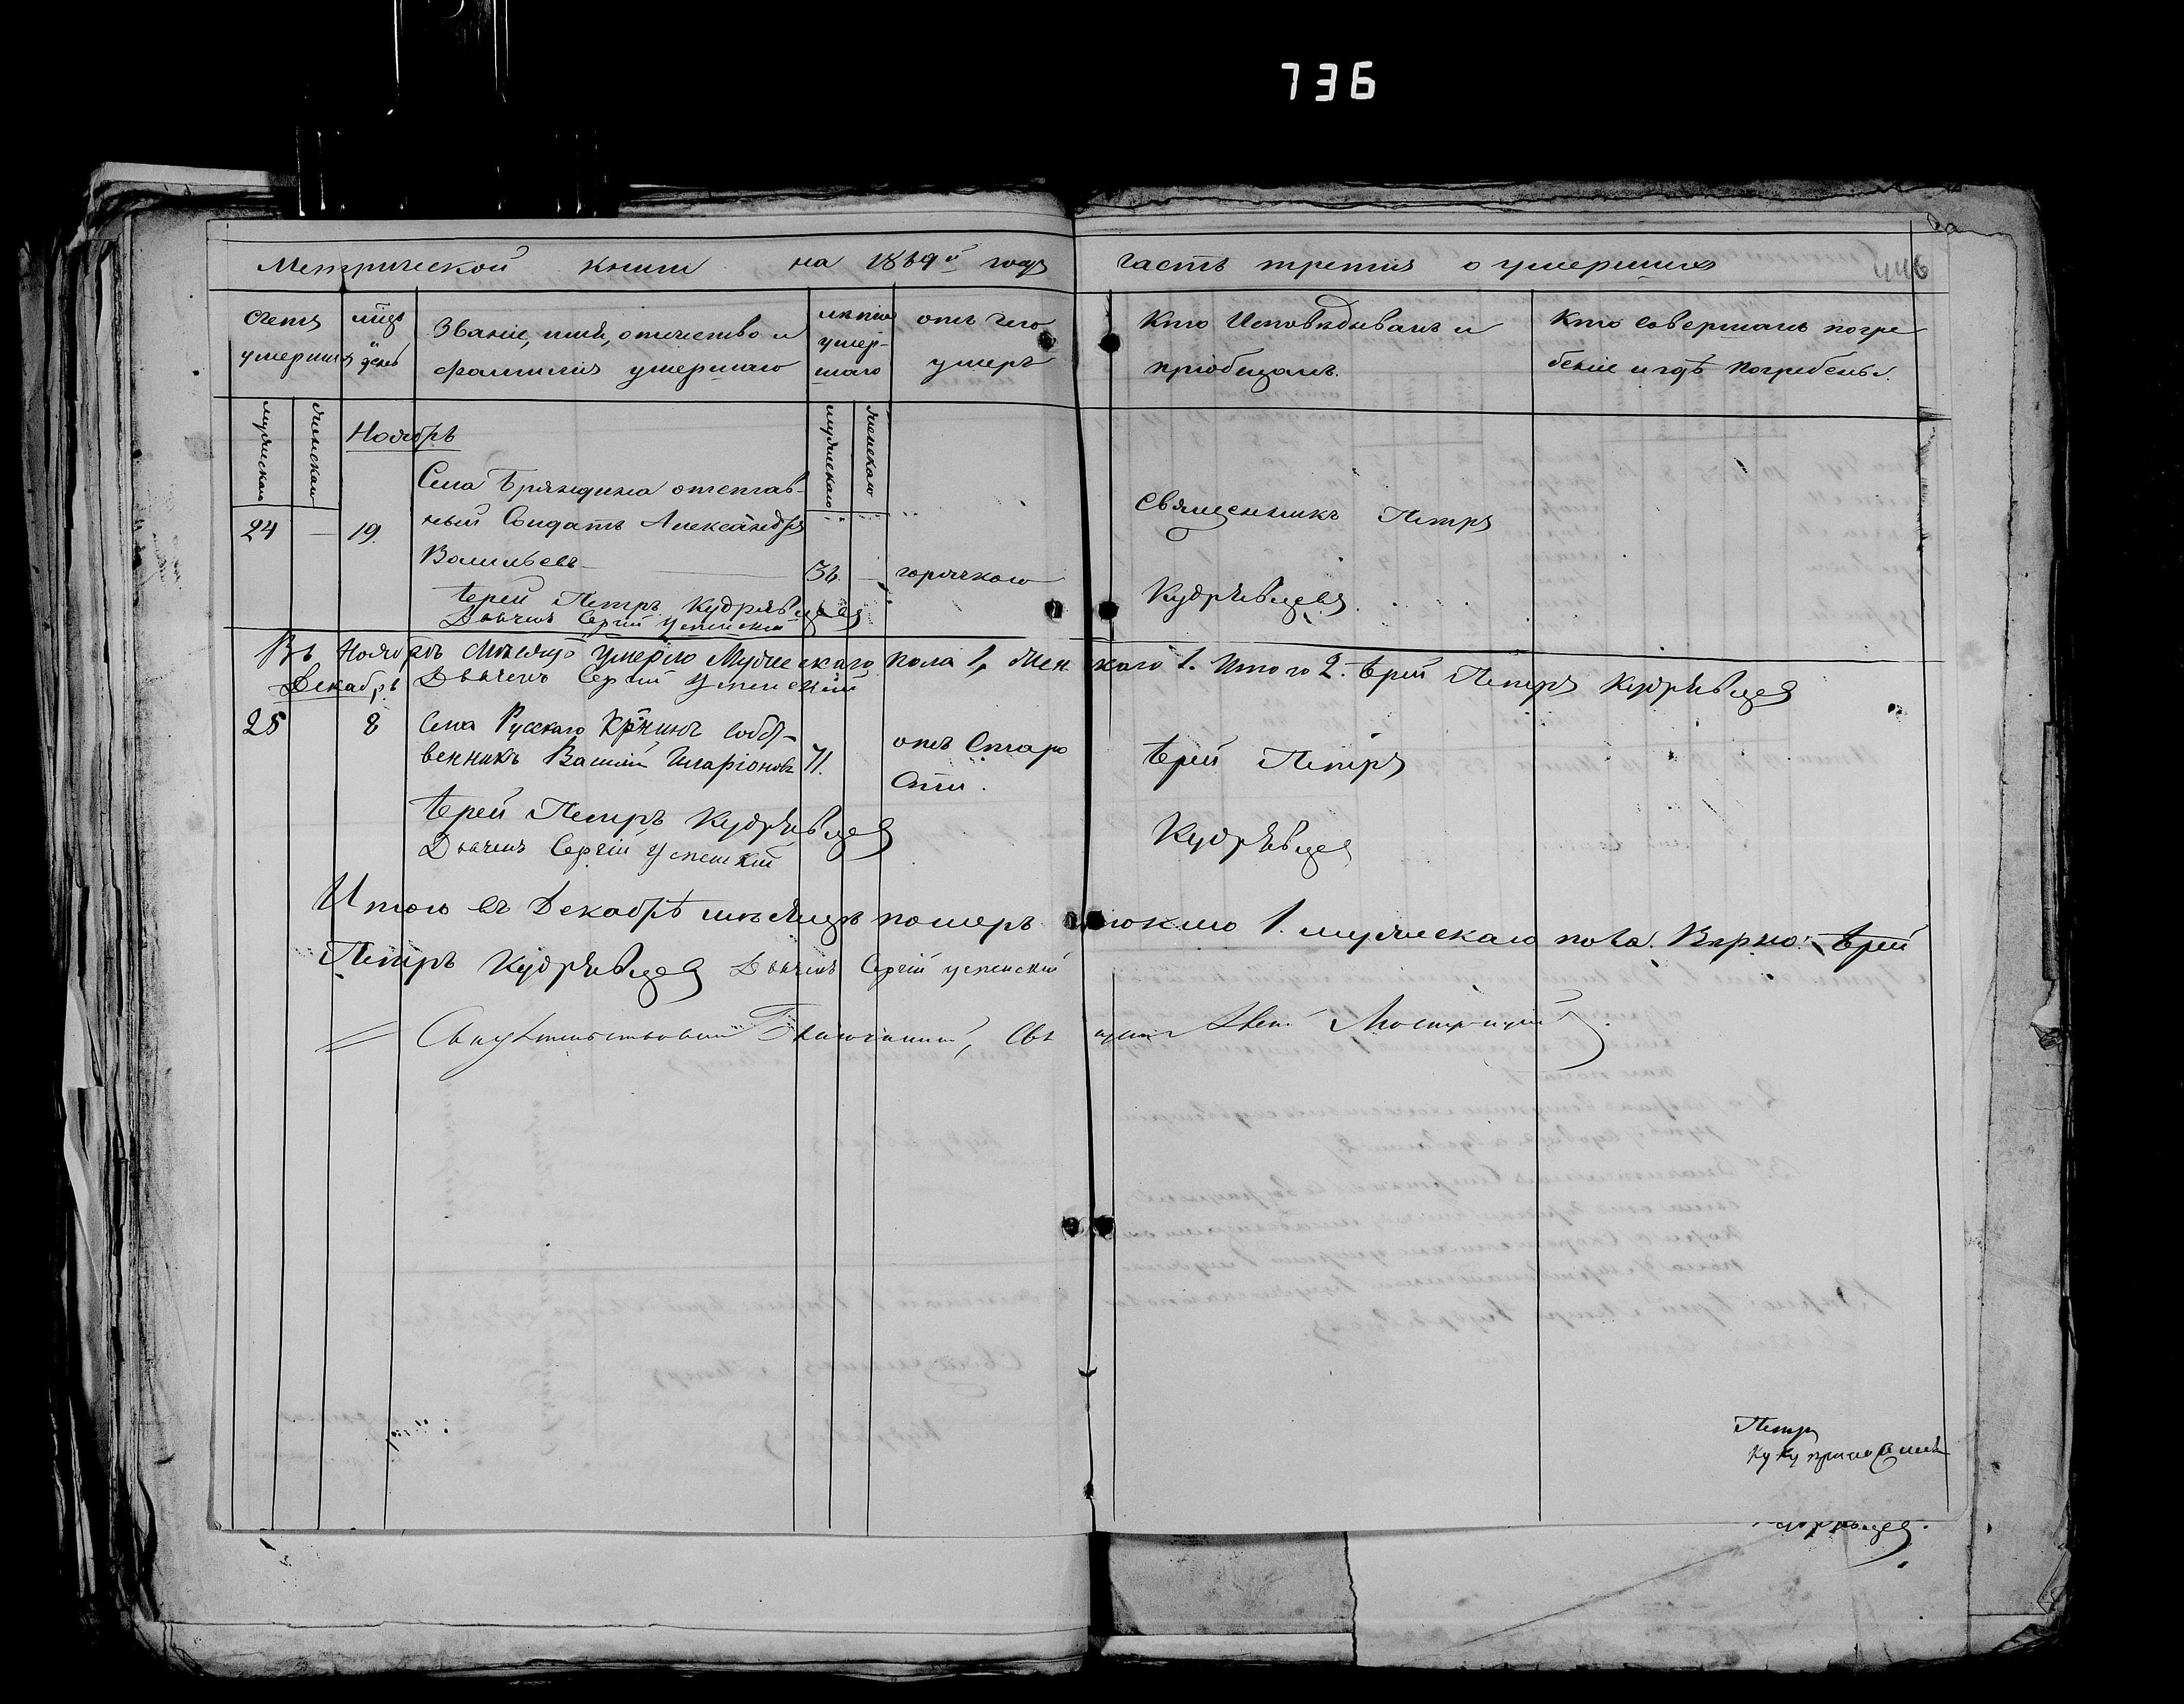 736
Метрической книги на 1869й годъ часть третія о умершихъ
446
Счетъ умершихъ
мцъ и день
Званіе, имя, отчество и фамилія умершаго
лѣта умер-шаго
отъ чего умеръ
Кто Исповѣдывалъ и пріобщалъ.
Кто совершалъ погре беніе и гдѣ погребены.
мужескаго
женскаго
мужескаго
женскаго
Ноябрь
Села отстав-
24 — 19. ный Солдатъ Александръ
Васильевъ — горячкою
Священникъ Петръ
Кудрявцевъ.
Іерей Петръ Кудрявцевъ
Дьячекъ Сергій Успенскій
Въ Ноябрѣ мѣсяцѣ умерло Мужескаго пола 1, Женскаго 1. Итого 2. Іерей Петръ Кудрявцевъ
Декабрь Дьячекъ Сергій Успенскій
25 8 Села Русскаго собст-
венникъ Василій Иларіоновъ 71.
отъ Старо
сти.
Іерей Петръ
Кудрявцевъ
Іерей Петръ Кудрявцевъ
Дьячекъ Сергій Успенскій
Итого въ Декабрѣ мѣсяцѣ померъ токмо 1. мужескаго пола. Вѣрно: Іерей
Петръ Кудрявцевъ Дьячекъ Сергій Успенскій
Свидѣтельствовалъ Благочинный,
Петръ